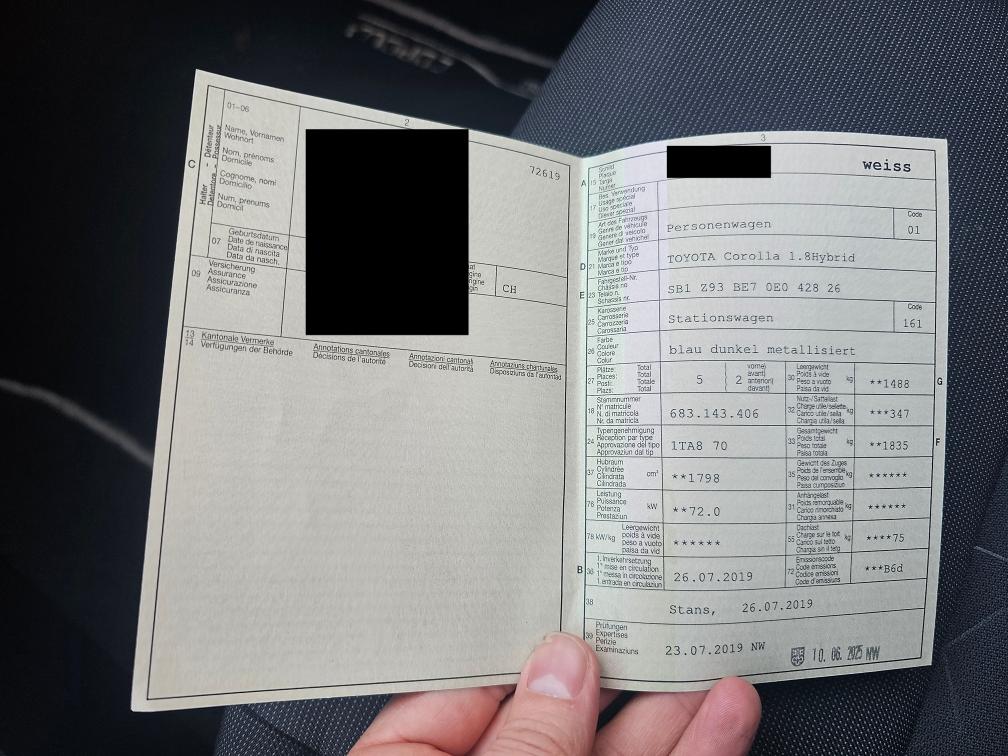 2
01–06
Name, Vornamen
Wohnort
Nom, prénoms
Domicile
Cognome, nomi
Domicilio
Num, prenums
Domicil
C
Halter - Détenteur
Detentore - Possessur
72619
07
Geburtsdatum
Date de naissance
Data di nascita
Data da nasch.
CH
09
Versicherung
Assurance
Assicurazione
Assicuranza
13
14
Kantonale Vermerke
Verfügungen der Behörde
Annotations cantonales
Décisions de l'autorité
Annotazioni cantonali
Decisioni dell'autorità
Annotaziuns chantunalas
Disposiziuns da l'autoritad
3
A
15
Schild
Plaque
Targa
Numer
weiss
17
Bes. Verwendung
Usage spécial
Uso speciale
Diever spezial
19
Art des Fahrzeugs
Genre de véhicule
Genere di veicolo
Gener dal vehichel
Personenwagen
Code
01
D
21
Marke und Typ
Marque et type
Marca e tipo
Marca e tip
TOYOTA Corolla 1.8Hybrid
E
23
Fahrgestell-Nr.
Châssis no
Telaio n.
Schassis nr.
SB1 Z93 BE7 0E0 428 26
25
Karosserie
Carrosserie
Carrozzeria
Carossaria
Stationswagen
Code
161
26
Farbe
Couleur
Colore
Colur
blau dunkel metallisiert
27
Plätze: Total
Places: Total
Posti: Totale
Plazs: Total
5
2
vorne)
avant)
anteriori)
davant)
30
Leergewicht
Poids à vide
Peso a vuoto
Paisa da vid
kg
**1488
G
18
Stammnummer
N° matricule
N. di matricola
Nr. da matricla
683.143.406
32
Nutz-/Sattellast
Charge utile/sellette
Carico utile/sella
Chargia utila/sella
kg
***347
24
Typengenehmigung
Réception par type
Approvazione del tipo
Approvaziun dal tip
1TA8 70
33
Gesamtgewicht
Poids total
Peso totale
Paisa totala
kg
**1835
F
37
Hubraum
Cylindrée
Cilindrata
Cilindrada
cm³
**1798
35
Gewicht des Zuges
Poids de l'ensemble
Peso del convoglio
Paisa cumposiziun
kg
******
76
Leistung
Puissance
Potenza
Prestaziun
kW
**72.0
31
Anhängelast
Poids remorquable
Carico rimorchiato
Chargia annexa
kg
******
78 kW/kg
Leergewicht
poids à vide
peso a vuoto
paisa da vid
******
55
Dachlast
Charge sur le toit
Carico sul tetto
Chargia sin il tetg
kg
****75
B
36
1. Inverkehrsetzung
1re mise en circulation
1a messa in circolazione
1. entrada en circulaziun
26.07.2019
72
Emissionscode
Code émissions
Codice emissioni
Code d'emissiuns
***B6d
38
Stans, 26.07.2019
39
Prüfungen
Expertises
Perizie
Examinaziuns
23.07.2019 NW
10. 06. 2025 NW